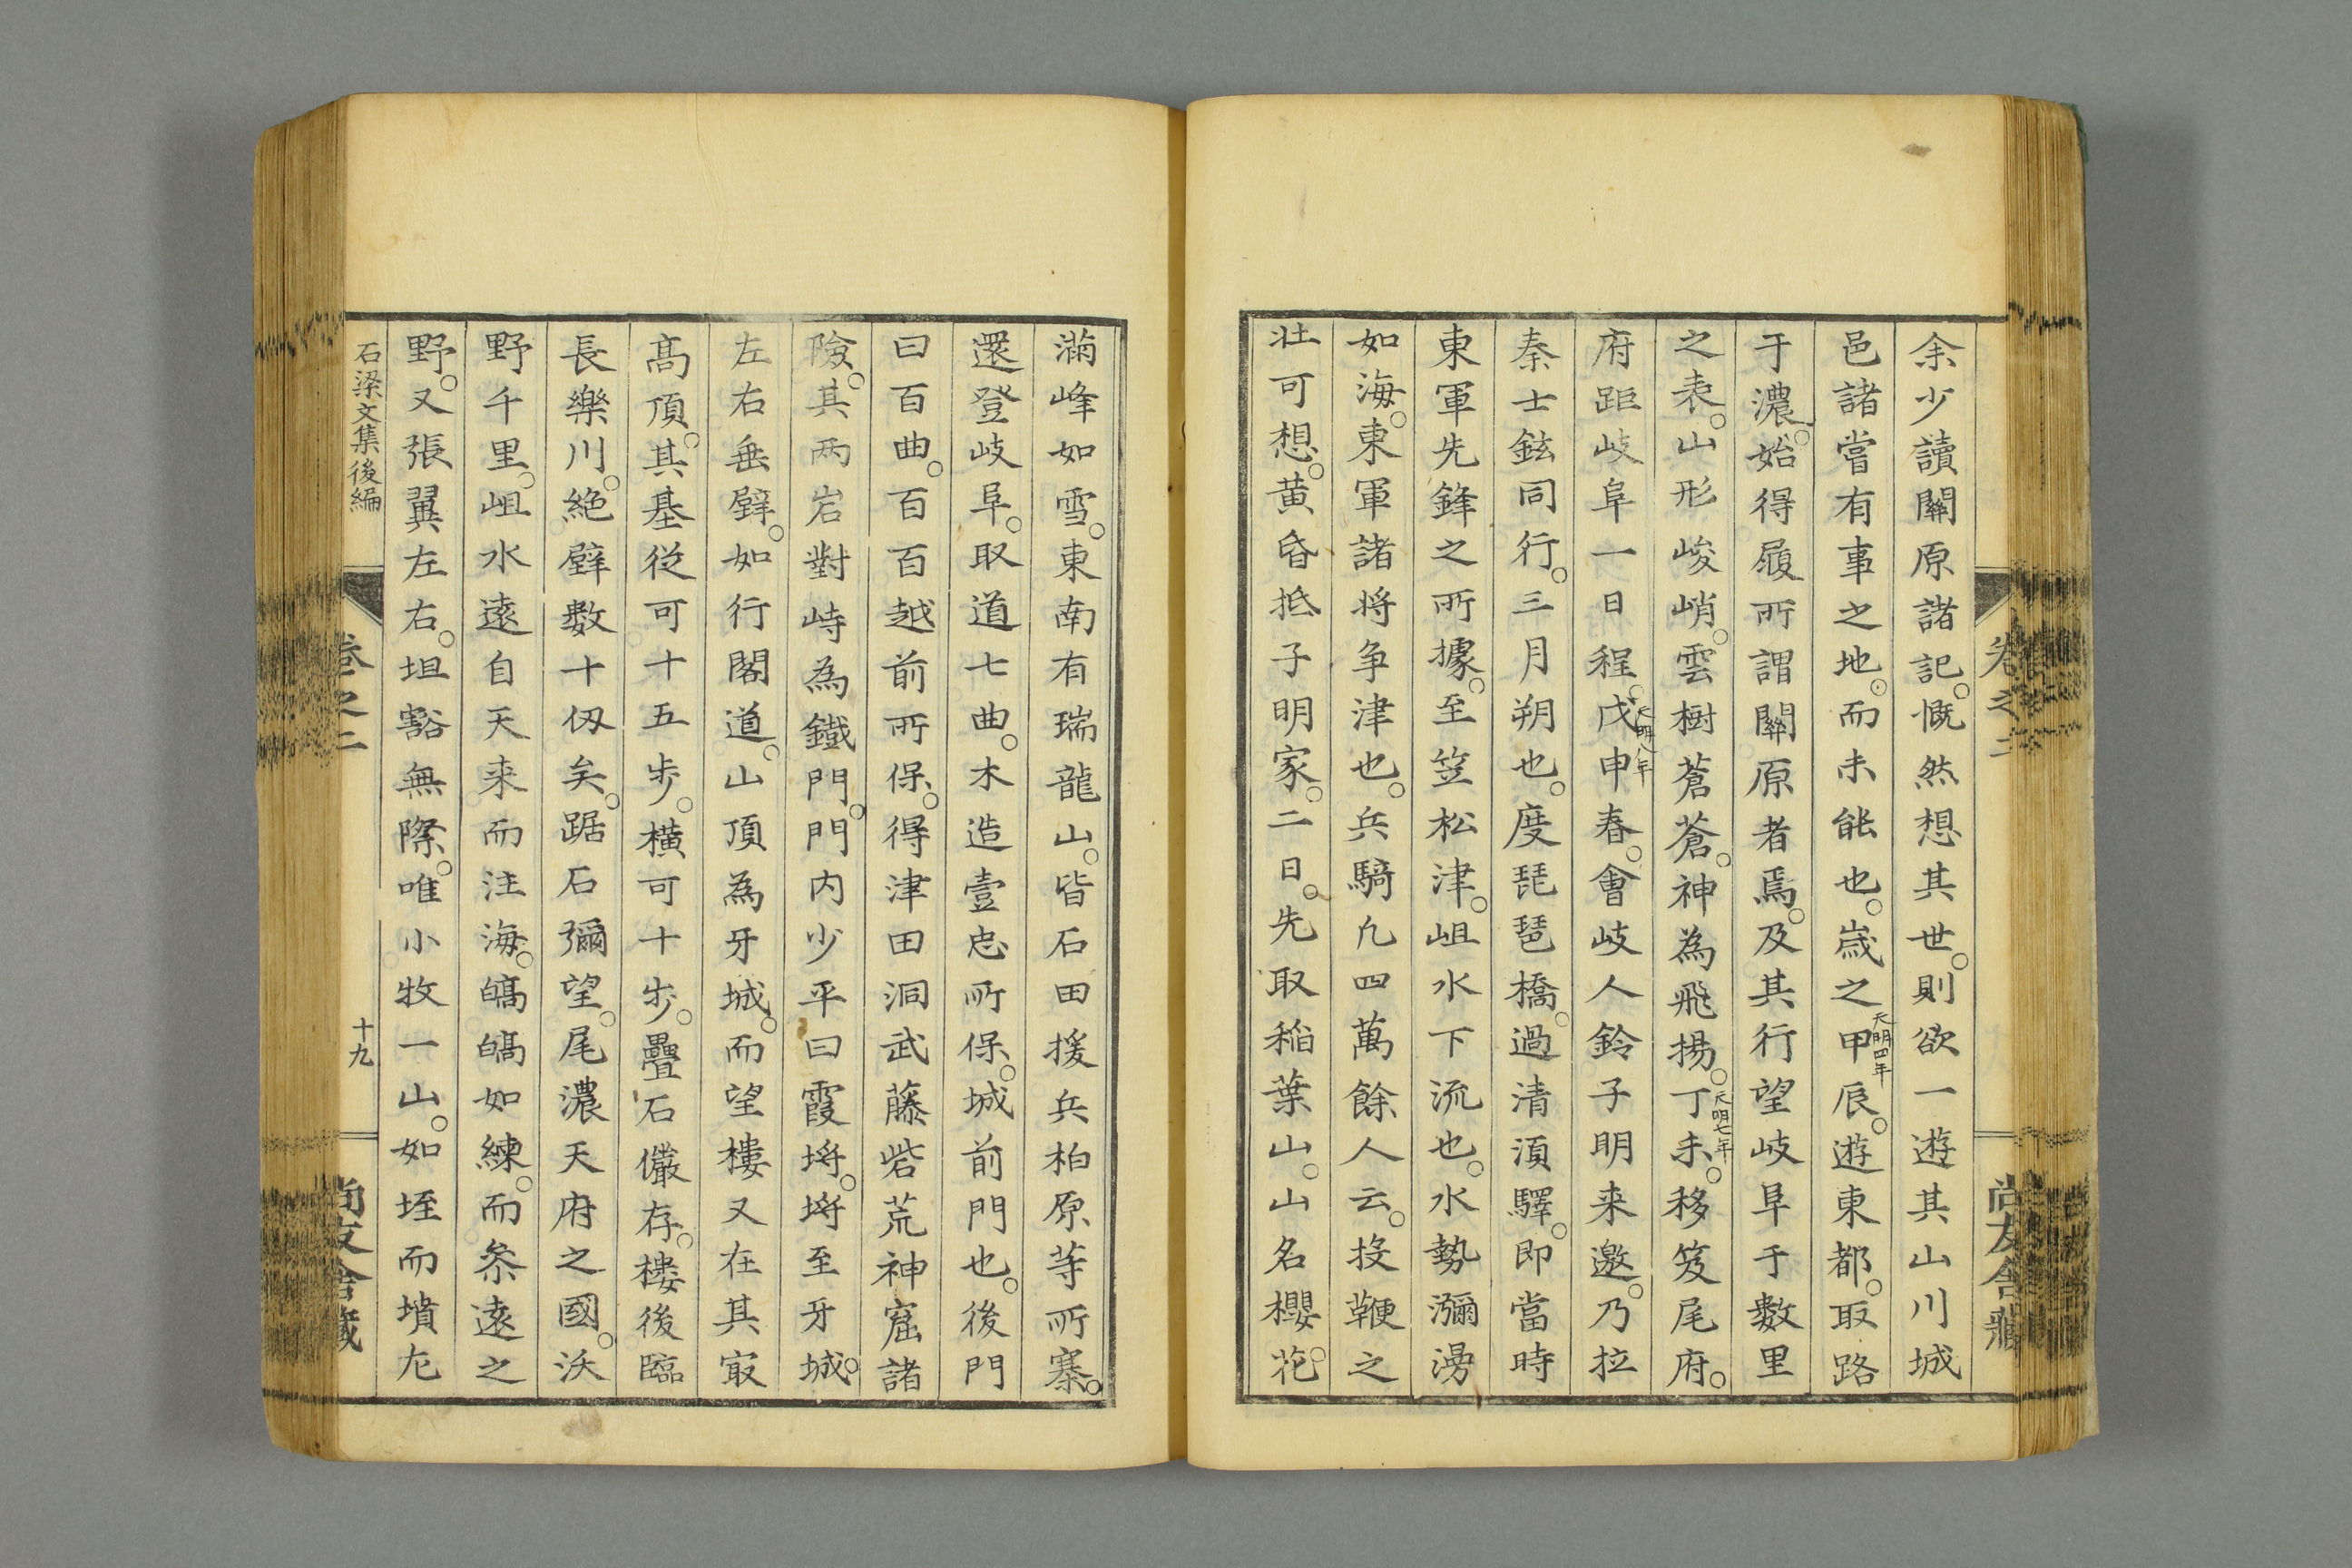 余少讀關原諸記。慨然想其世。則欲一遊其山川城
邑諸嘗有事之地。而未能也。歳之甲辰。遊東都。取路
天明四年
于濃。始得履所謂關原者焉。及其行望岐阜于數里
之表。山形峻峭。雲樹蒼蒼。神為飛揚。丁未。移笈尾府。
天明七年
府距岐阜一日程。戊申春。會岐人鈴子明来邀。乃拉
天明八年
秦士鉉同行。三月朔也。度琵琶橋。過清須驛。即當時
東軍先鋒之所據。至笠松津。岨水下流也。水勢瀰漫
如海。東軍諸将争津也。兵騎凢四萬餘人云。投鞭之
壮可想。黄昏抵子明家。二日。先取稲葉山。山名櫻花。
卷之二
尚友舎藏
滿峰如雪。東南有瑞龍山。皆石田援兵柏原等所寨。
還登岐阜。取道七曲。木造壹忠所保。城前門也。後門
曰百曲。百百越前所保。得津田洞武藤砦荒神窟諸
險。其两岩對峙為鐵門。門内少平曰霞埒。埒至牙城。
左右垂壁。如行閣道。山頂為牙城。而望樓又在其㝡
髙頂。其基従可十五歩。横可十歩。疊石儼存。樓後臨
長樂川。絶壁數十仭矣。踞石彌望。尾濃天府之國。沃
野千里。岨水遠自天来而注海。皜皜如練。而叅遠之
野。又張翼左右。坦豁無際。唯小牧一山。如垤而墳尢
石梁文集後編
卷之二
十九
尚友舎藏